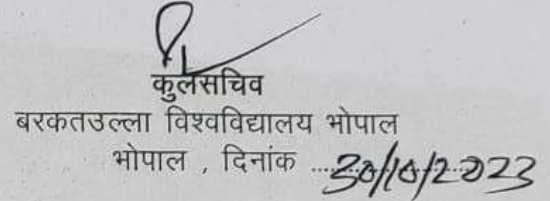 कुलसचिव
बरकतउल्ला विश्वविद्यालय भोपाल
भोपाल , दिनांक ...30/10/2023